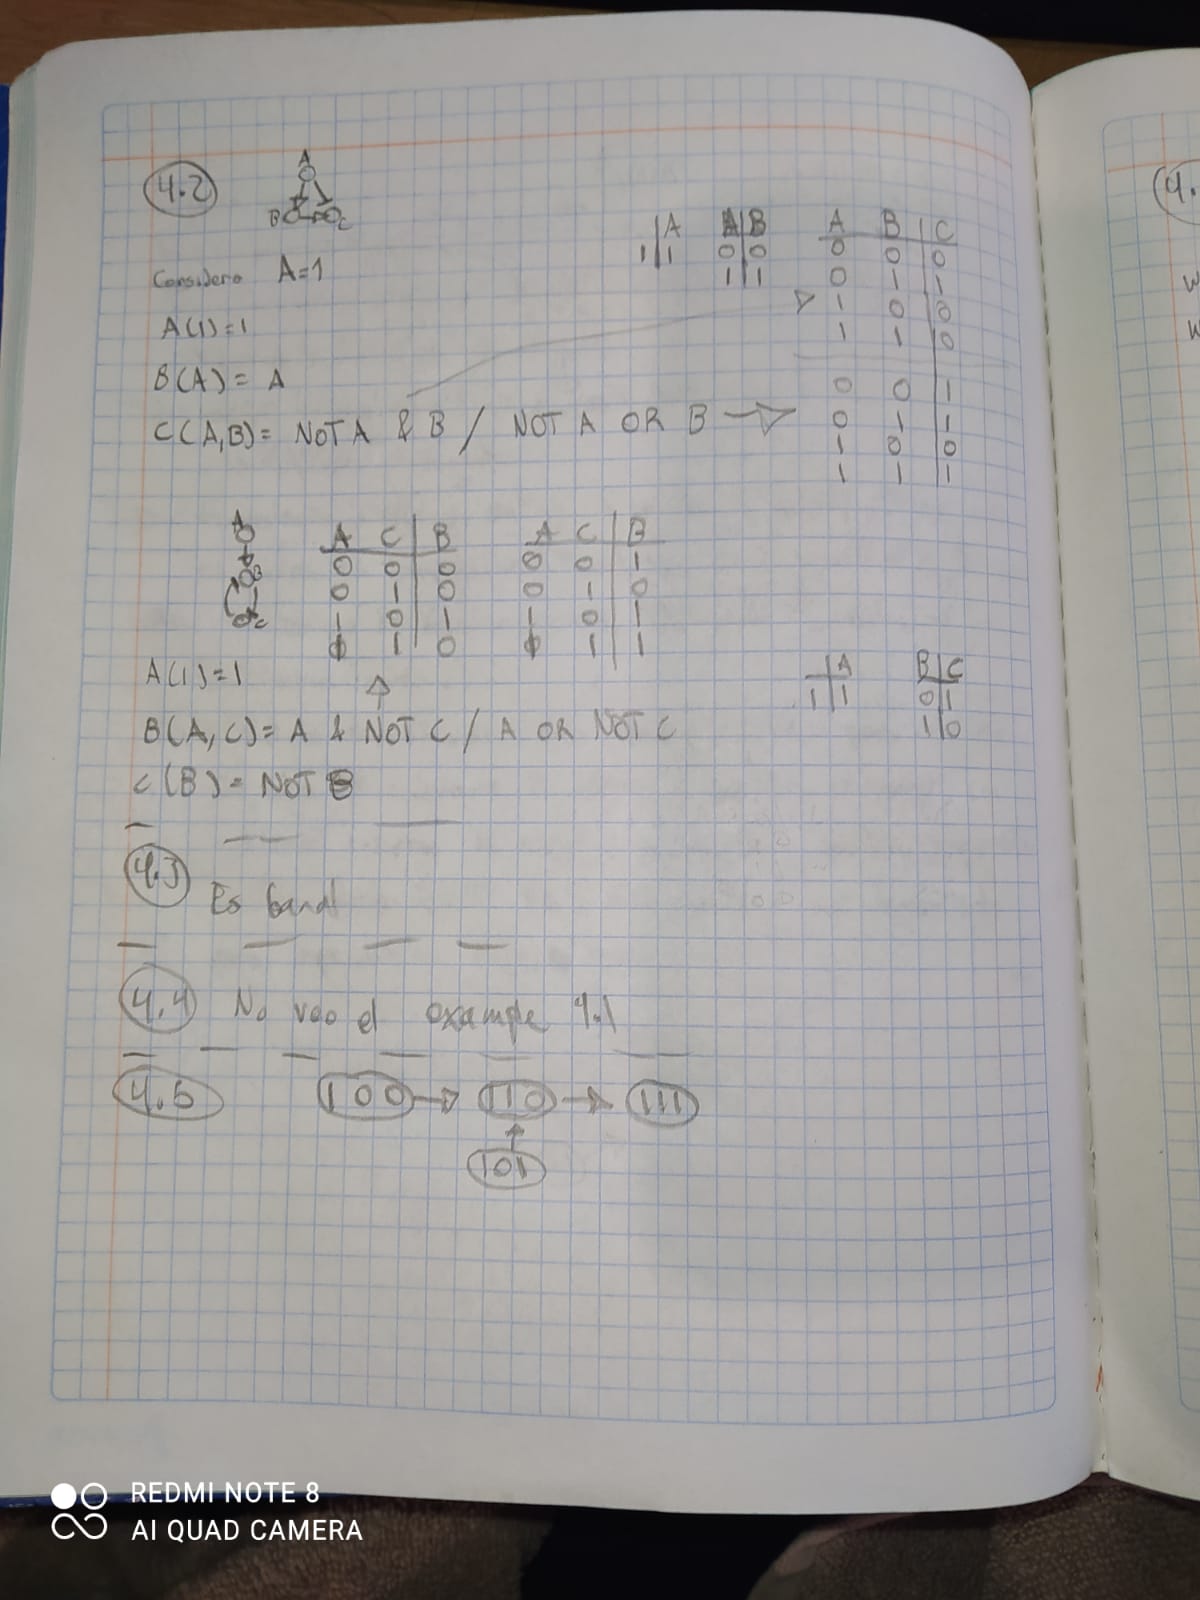 4.2
A
B C
Considero A=1
A(1)=1
B(A)= A
C(A,B)= NOT A & B / NOT A OR B
A
1 1
A B
0 0
1 1
A B C
0 0 0
0 1 1
1 0 0
1 1 0
0 0 1
0 1 1
1 0 0
1 1 1
A
B
C
A C B
0 0 0
0 1 0
1 0 1
1 0
A C B
0 0 1
0 1 0
1 0 1
1 1
A(1)=1
B(A,C)= A & NOT C / A OR NOT C
C(B)= NOT B
A
1 1
B C
0 1
1 0
4.3
Es banal
4.4 No veo el example 4.1
4.5 100 110 111
101
(4.
REDMI NOTE 8
AI QUAD CAMERA